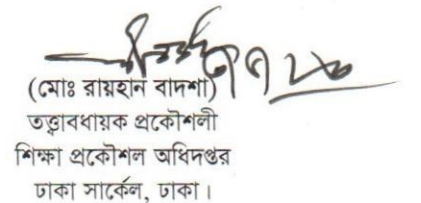 (মোঃ রায়হান বাদশা)
তত্ত্বাবধায়ক প্রকৌশলী
শিক্ষা প্রকৌশল অধিদপ্তর
ঢাকা সার্কেল, ঢাকা।